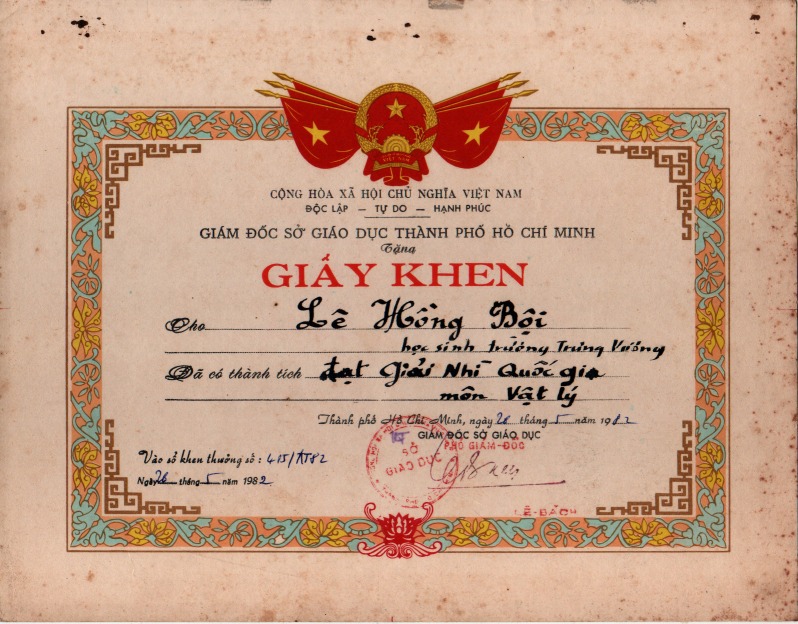 VIỆT NAM
CỘNG HÒA XÃ HỘI CHỦ NGHĨA VIỆT NAM
ĐỘC LẬP – TỰ DO – HẠNH PHÚC
GIÁM ĐỐC SỞ GIÁO DỤC THÀNH PHỐ HỒ CHÍ MINH
Tặng
GIẤY KHEN
Cho Lê Hồng Bội
học sinh trường Trưng Vương
Đã có thành tích đạt Giải Nhì Quốc gia
môn Vật lý
Thành phố Hồ Chí Minh, ngày 20 tháng 5 năm 1982
KT GIÁM ĐỐC SỞ GIÁO DỤC
PHÓ GIÁM-ĐỐC
SỞ
GIÁO DỤC
Vào sổ khen thưởng số : 415/KT82
Ngày 20 tháng 5 năm 1982
LÊ-BÁCH